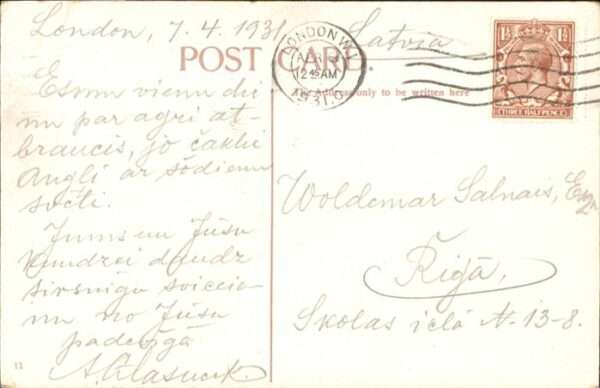 London, 7.4.1931
Latvia
POST CARD
LONDON W.1
12 45 AM
1931
Address only to be written here
THREE HALFPENCE
Esmu vienu di
nu par agri at-
braucis, jo čakli
Angli ar šodienu
svēti.
Jums un Jūsu
Kundzei daudz
sirsnīgu sveicie-
nu no Jūsu
padevīgā
Woldemar Salnais, Esq
Rīgā,
Skolas ielā N. 13-8.
11